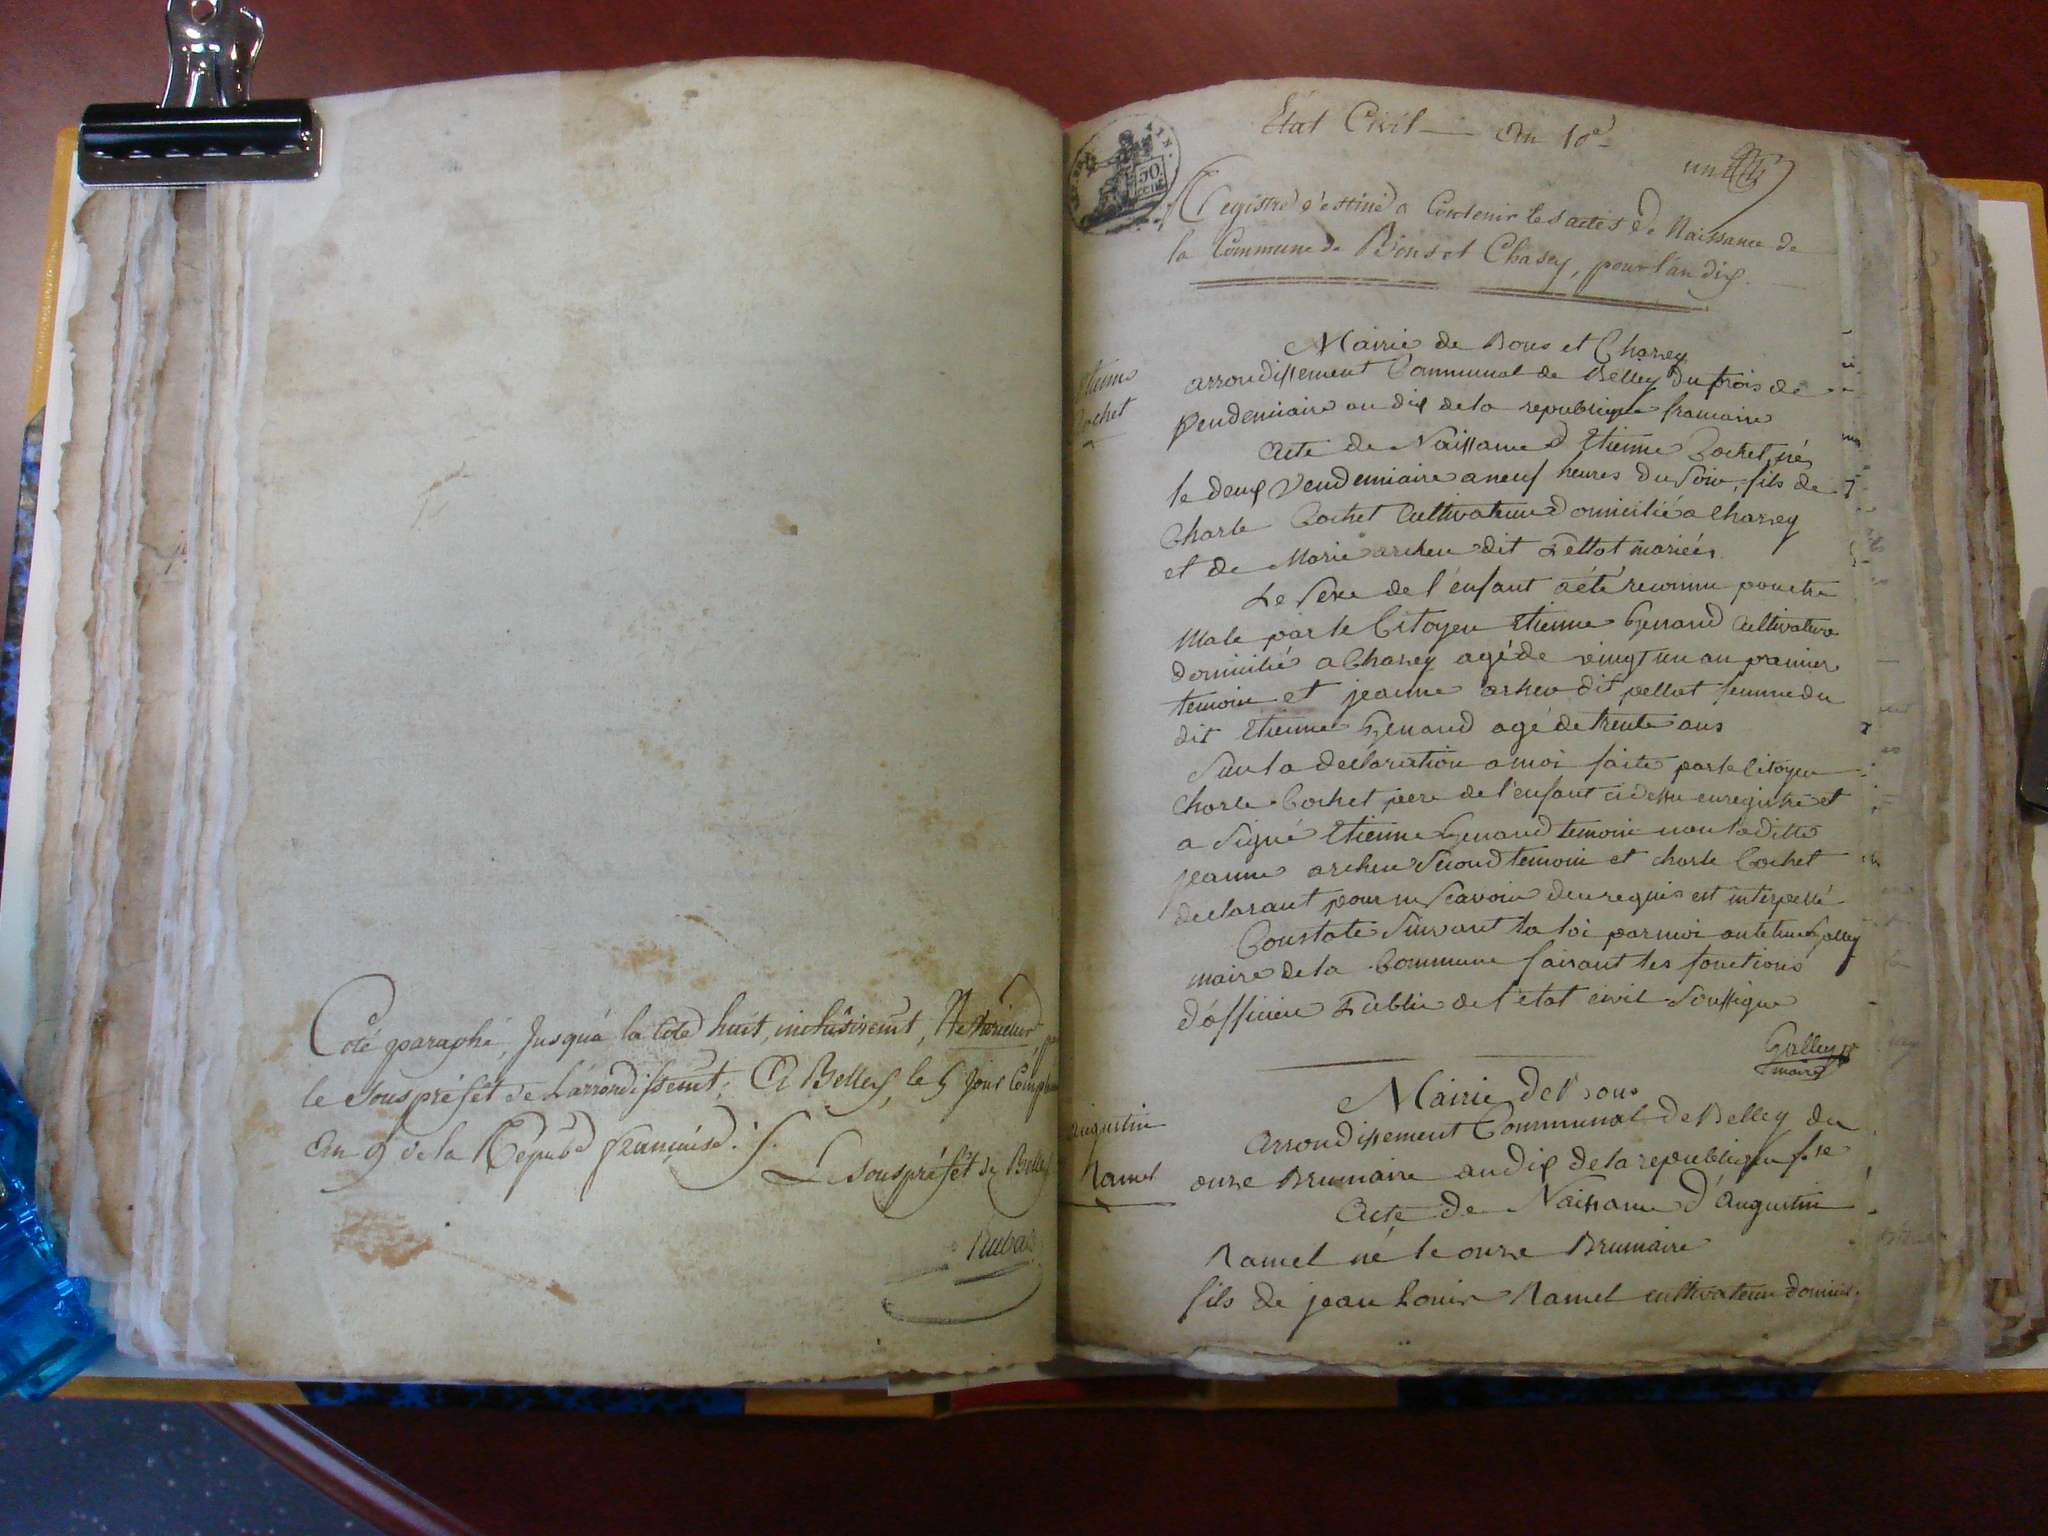 Coté paraphé, Jusqu'à la Cote huit, inclusivemt,
le souspréfet de l'arrondissemt. A Belley, le 5 Jour
An 9 de la Répub française ./.
Le souspréfet de Belley
Etat Civil — An 10e
un
50
Registre destiné a Contenir les actes de Naissance de
la Commune de Bons et Chasey, pour l'an dix.
Etienne
Cochet
Mairie de Bons et Chazey
arrondissement Communal de Belley du trois de
Vendemiaire an dix de la republique francaise
Acte de Naissance d Etienne Cochet né
le deux Vendemiaire a neuf heures du Soir, fils de
Charle Cochet Cultivateur domicilié a Chazey
et de Marie archeu dit Pellot mariés
Le Sexe de l'enfant a été reconnu pour etre
Male par le Citoyen Etienne Genand Cultivateur
domicilié a Chazey agé de vingt un an premier
temoin et jeanne archeu dit pellot femme du
dit Etienne Genand agé de trente ans
Sur la declaration a moi faite par le Citoyen
Charle Cochet pere de l'enfant ci dessu enregistré et
a Signé Etienne Genand temoin non la ditte
jeanne archeu Second temoin et charle Cochet
declarant pour ne Scavoir de ce requis est interpellé
Constaté Suivant la loi par moi Galley
maire de la Commune faisant les fonctions
d'officier Public de l'etat civil Soussigne
Galley
maire
Augustin
Ramel
Mairie de Bons
Arrondissement Communal de Belley du
onze Brumaire an dix de la republique f.se
Acte de Naissance d'Augustin
Ramel né le onze Brumaire
fils de jean Louis Ramel cultivateur domicil.